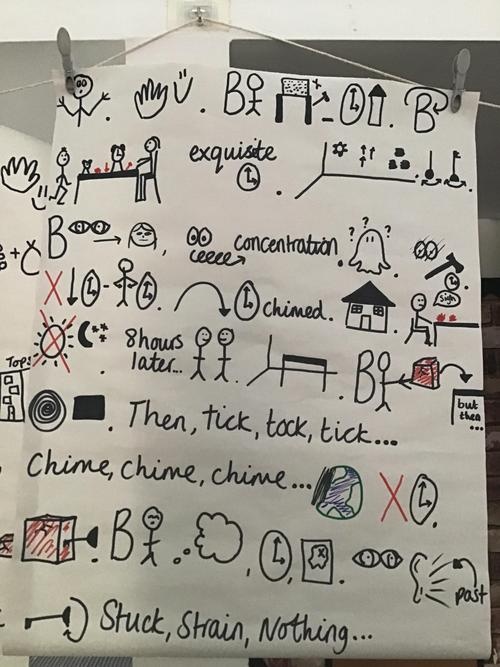 B B
exquisite
B concentration.
chimed. Sigh
8 hours
later... B
Top!
but
then
...
Then, tick, tock, tick...
Chime, chime, chime... X
B
past
Stuck, Strain, Nothing...